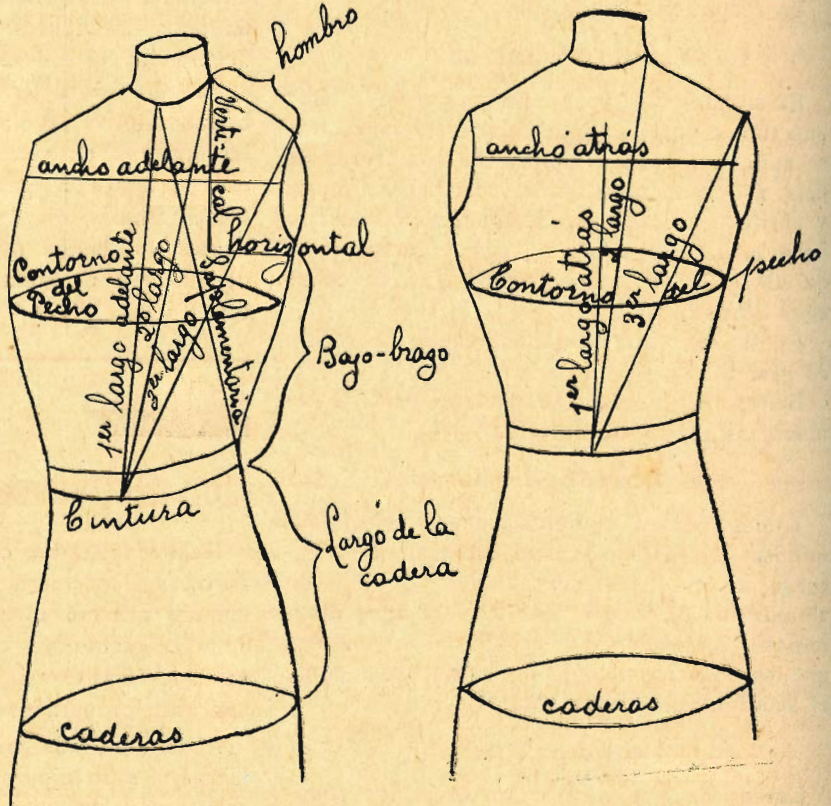 hombro
Verti-cal
ancho adelante
horizontal
Contorno
del
Pecho
1er largo adelante
2º largo
3er largo
Suplementaria
Bajo-brazo
Cintura
Largo de la
cadera
caderas
ancho atrás
1er largo atrás
2º largo
3er largo
Contorno del pecho
caderas